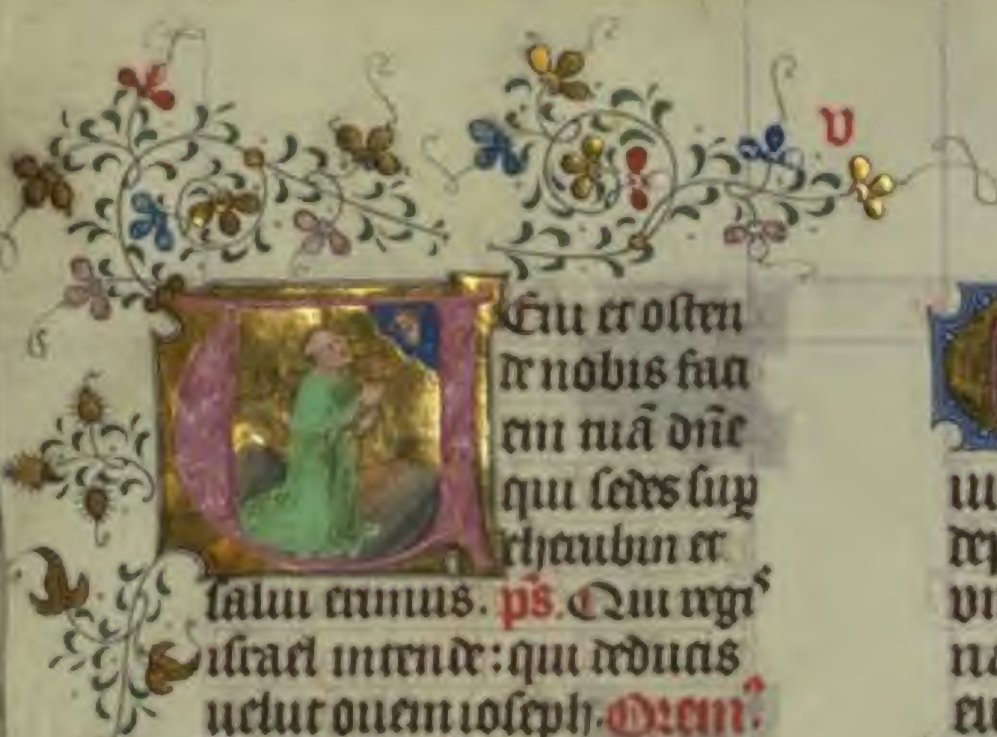 v
VEni et osten
de nobis faci
em tuā dn̄e
qui sedes sup
cherubin et
salui erimus. ps̄. Qui regis
israel intende: qui deducis
uelut ouem ioseph. Orem̄.